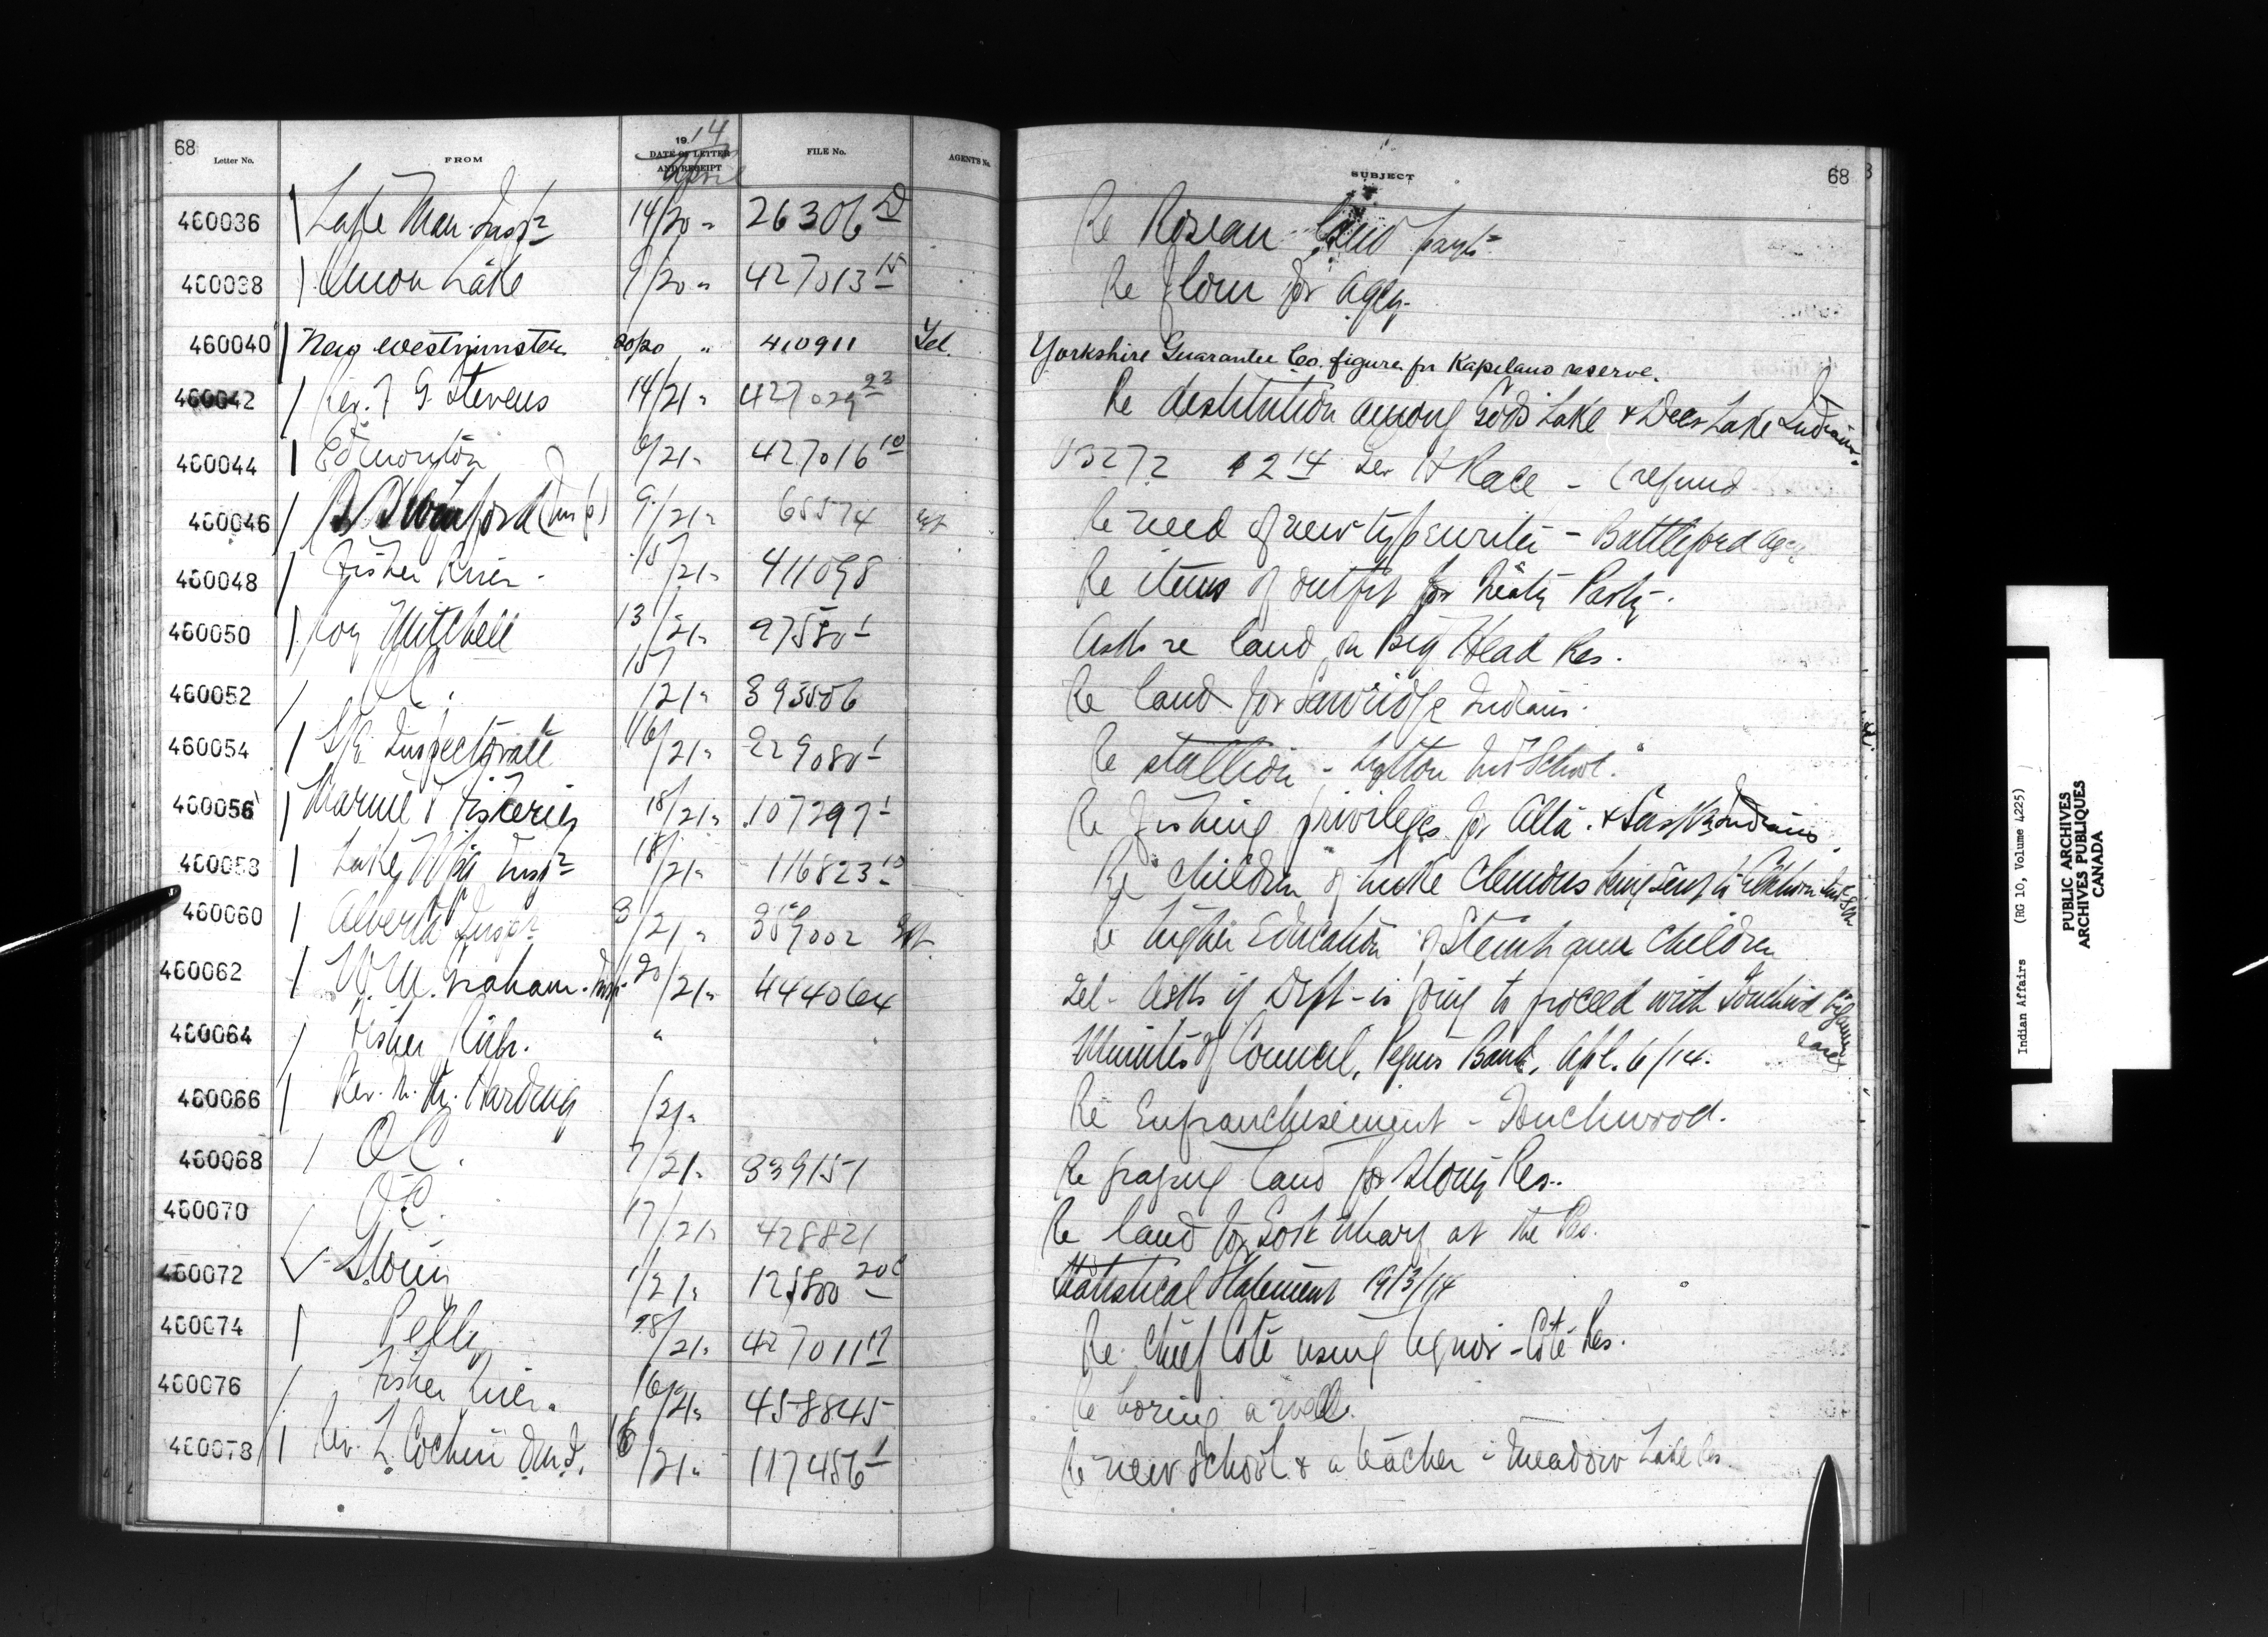 68
Letter No.
FROM
1914
DATE OF LETTER
AND RECEIPT
April
FILE No.
AGENT'S No.
SUBJECT
68
460036 Lake Man. Inspr 14/20 " 26306 D Re Roseau land paymt
460038 Onion Lake 9/20 " 427013 15 Re flour for agcy.
460040 New Westminster 20/20 " 410911 Tel. Yorkshire Guarantee Co. figure for Kapilano reserve.
460042 Rev. F G. Stevens 14/21 " 427029 23 Re destitution among Gods Lake & Deer Lake Indians.
460044 Edmonton 6/21 " 427016 10 $2 14 H Race - (refund
460046 Swinford (Insp) 9/21 " 65574 Re need of new typewriter - Battleford Agcy
460048 Fisher River. 15/21 " 411098 Re items of outfit for Treaty Party.
460050 Roy Mitchell 13/21 " 97580 1 Asks re land on Big Head Res.
460052 O C. 15/21 " 393506 Re land for Sawridge Indians.
460054 S/E Inspectorate 16/21 " 229080 1 Re stallion - Lytton Ind School.
460056 Marine & Fisheries 18/21 " 107297 1 Re fishing privileges for Alta. & Sask Indians.
460058 Lake Wpg Inspr 18/21 " 116823 10 Re children of Luke Clemons being sent to Elkhorn Ind Sch
460060 Alberta Inspr 8/21 " 389002 Re higher Education of Steinhauer children
460062 W. M. Graham. Insp. 20/21 " 444064 Tel - Asks if Dept - is going to proceed with Touchwood Bigamy case
460064 Fisher River. " Minutes of Council, Peguis Band, Apl. 6/14.
460066 Rev. Harding /21 " Re Enfranchisement - Touchwood.
460068 O C. 7/21 " 339151 Re grazing land for Stony Res..
460070 O C. 17/21 " 428821 Re land for Govt Wharf at The Pas.
460072 Stony 1/21 " 12580020 C Statistical Statement 1913/14
460074 Pelly 18/21 " 427011 17 Re Chief Coté using liquor - Coté Res.
460076 Fisher River. 16/21 " 458845 Re boring a well.
460078 Rev. L. Cochin O.M.I. 16/21 " 117456 1 Re new School & a teacher - Meadow Lake Res.
Indian Affairs (RG 10, Volume 4225)
PUBLIC ARCHIVES
ARCHIVES PUBLIQUES
CANADA